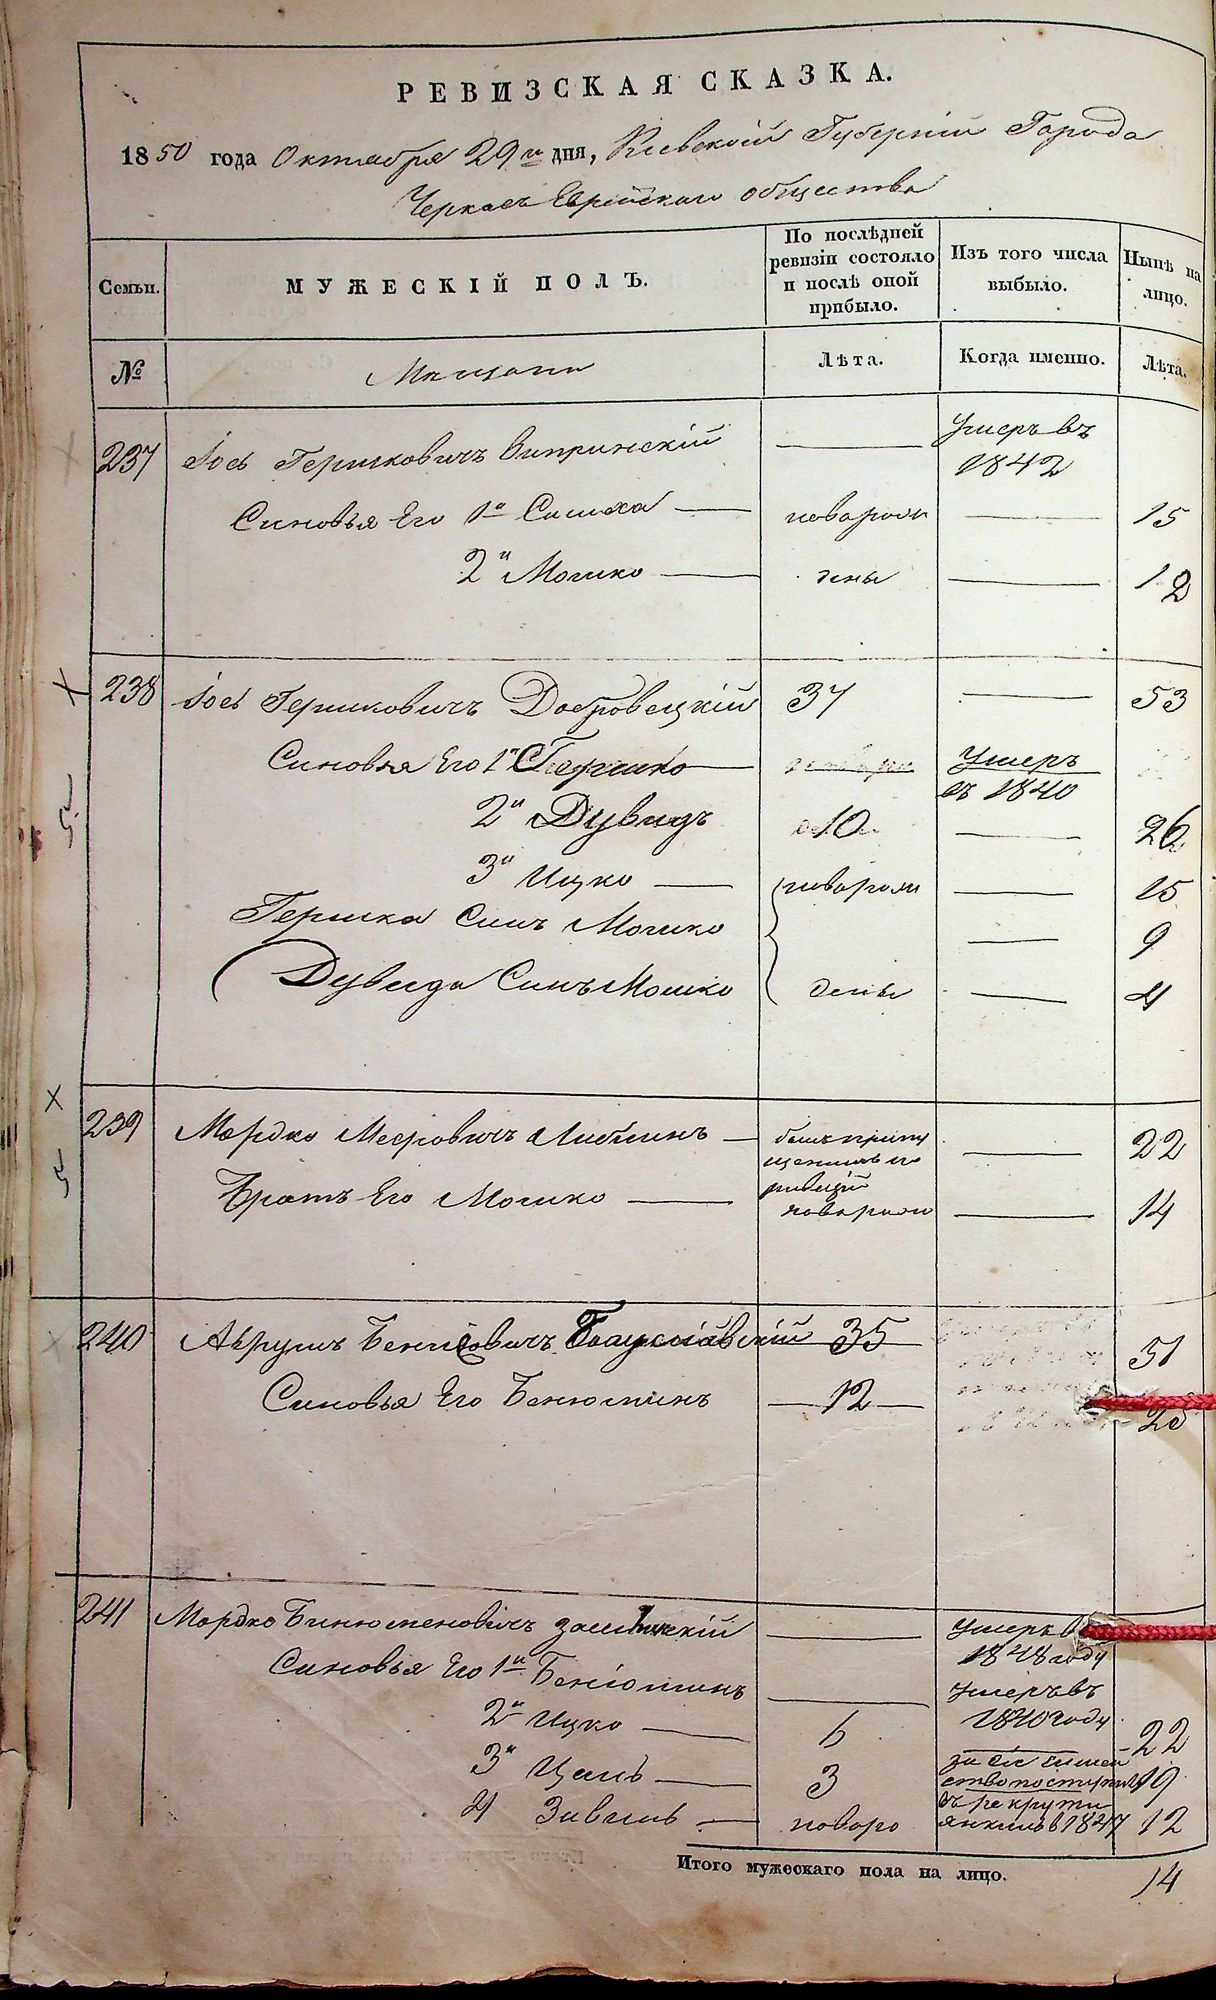 РЕВИЗСКАЯ СКАЗКА.
1850 года Октября 29го дня, Киевской Губерніи Города
Черкасъ Еврейскаго общества
Семьи.
МУЖЕСКІЙ ПОЛЪ.
По послѣдней
ревизіи состояло
и послѣ оной
прибыло.
Изъ того числа
выбыло.
Нынѣ на
лицо.
№
Мещани
Лѣта.
Когда именно.
Лѣта.
237 Іось Гершковичъ Випринскій Умеръ въ
1842
Синовья Его 1й новорож 15
2й Мошко дены 12
238 Іось Гершковичъ Добровецкій 37 53
Синовья Его 1й Гершко Умеръ
въ 1840
2й Дувидъ 10 26
3й Ицко новорож 15
Гершка Синъ Мошко 9
Дувида Синъ Мошко дены 4
239 Мордко Меровичъ 22
ревизіи
Братъ Его Мошко новорож 14
240 Аврумъ 35 51
Синовья Его Бенюминъ 12
241 Мордко Бинюменовичъ Умеръ
1848 году
Синовья Его 1й Бенюминъ Умеръ въ
1840 году
2й Ицко 6 22
3й 3 19
въ рекрути
4 новоро 1847 12
Итого мужескаго пола на лицо. 14
5
5